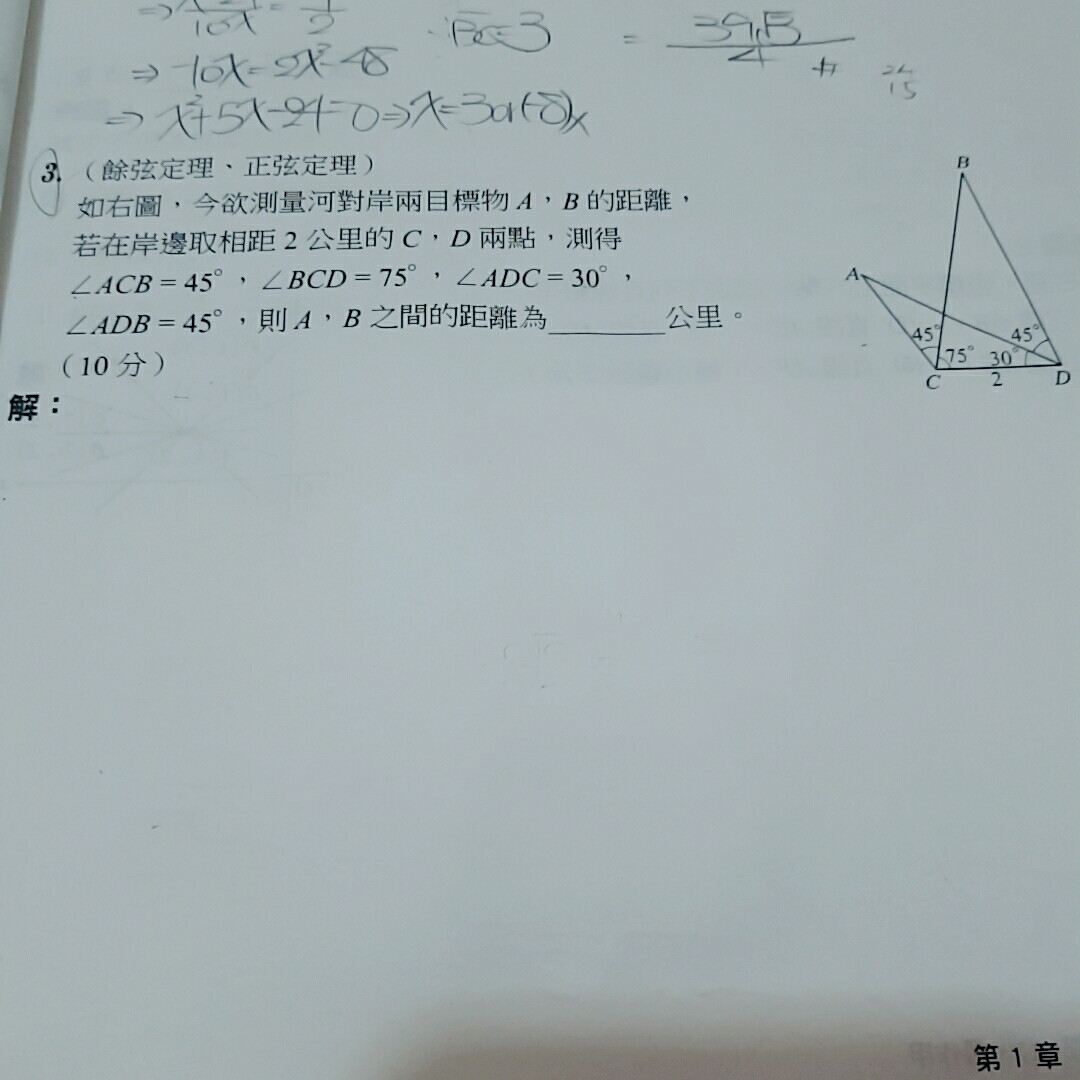 ⇒ 10x = 1/2
∴ BC = 3
= 39√3/4 #
⇒ -10x = 2x² - 48
⇒ x² + 5x - 24 = 0 ⇒ x = 3 or (-8)x
3. （餘弦定理、正弦定理）
如右圖，今欲測量河對岸兩目標物 A，B 的距離，
若在岸邊取相距 2 公里的 C，D 兩點，測得
∠ACB = 45°，∠BCD = 75°，∠ADC = 30°，
∠ADB = 45°，則 A，B 之間的距離為________公里。
（10 分）
解：
B
A
45°
45°
75°
30°
C
2
D
第 1 章